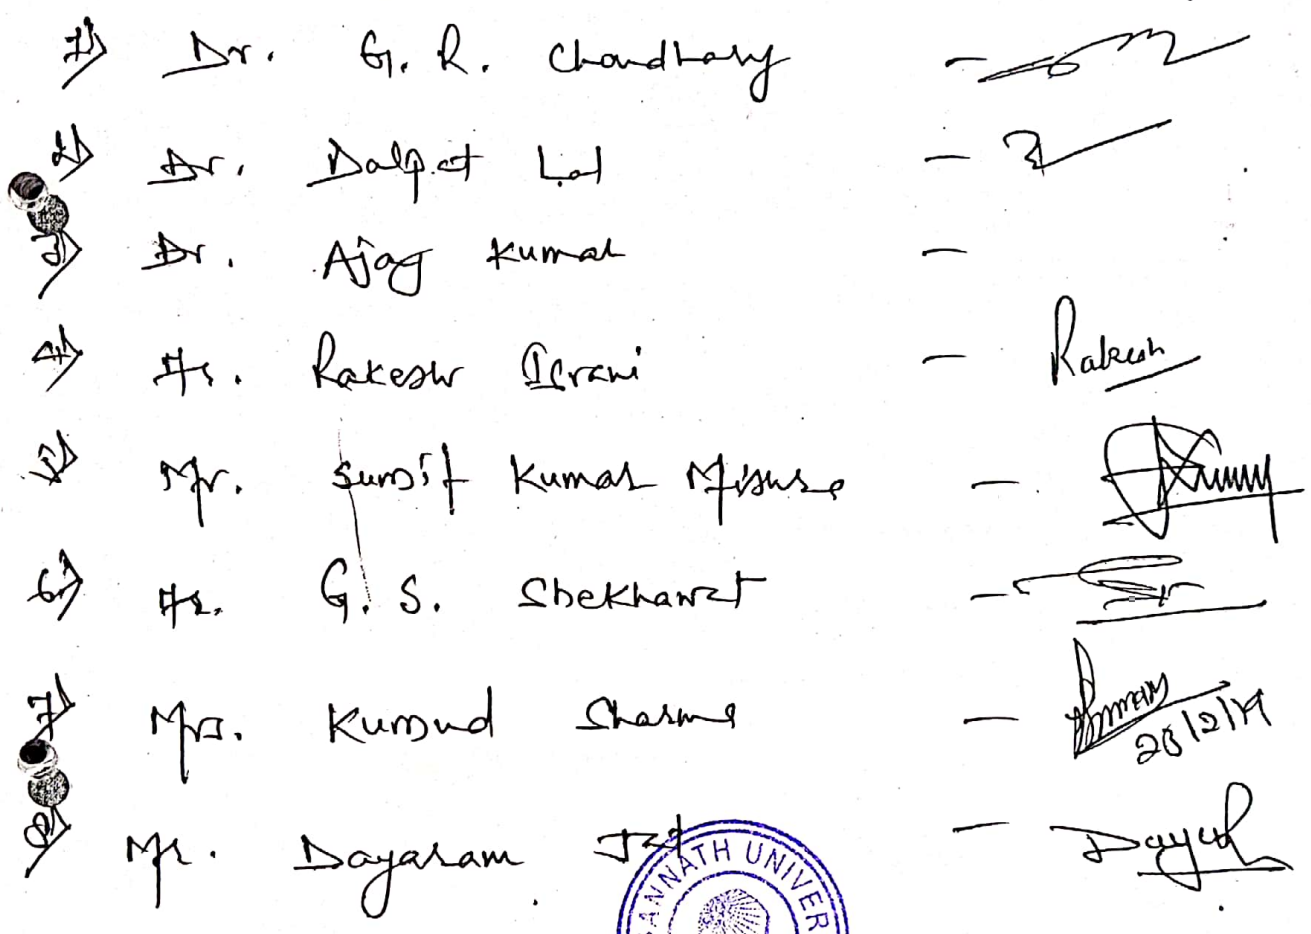 1) Dr. G. R. Choudhary -
2) Dr. Dalpat Lal -
3) Dr. Ajay Kumar -
4) Mr. Rakesh Israni - Rakesh
5) Mr. Sumit Kumar Mishra -
6) Mr. G. S. Shekhawat -
7) Mrs. Kumud Sharma - 28/2/19
8) Mr. Dayaram Jat - Dayaram
ANNATH UNIVER